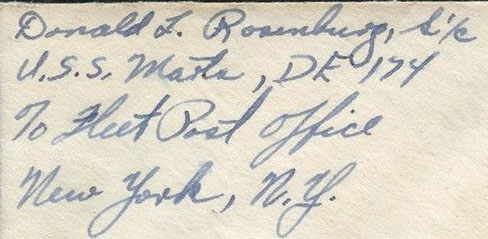 Donald L. Rosenburg, S1/c
U.S.S. Marts, DE 174
To Fleet Post Office
New York, N.Y.